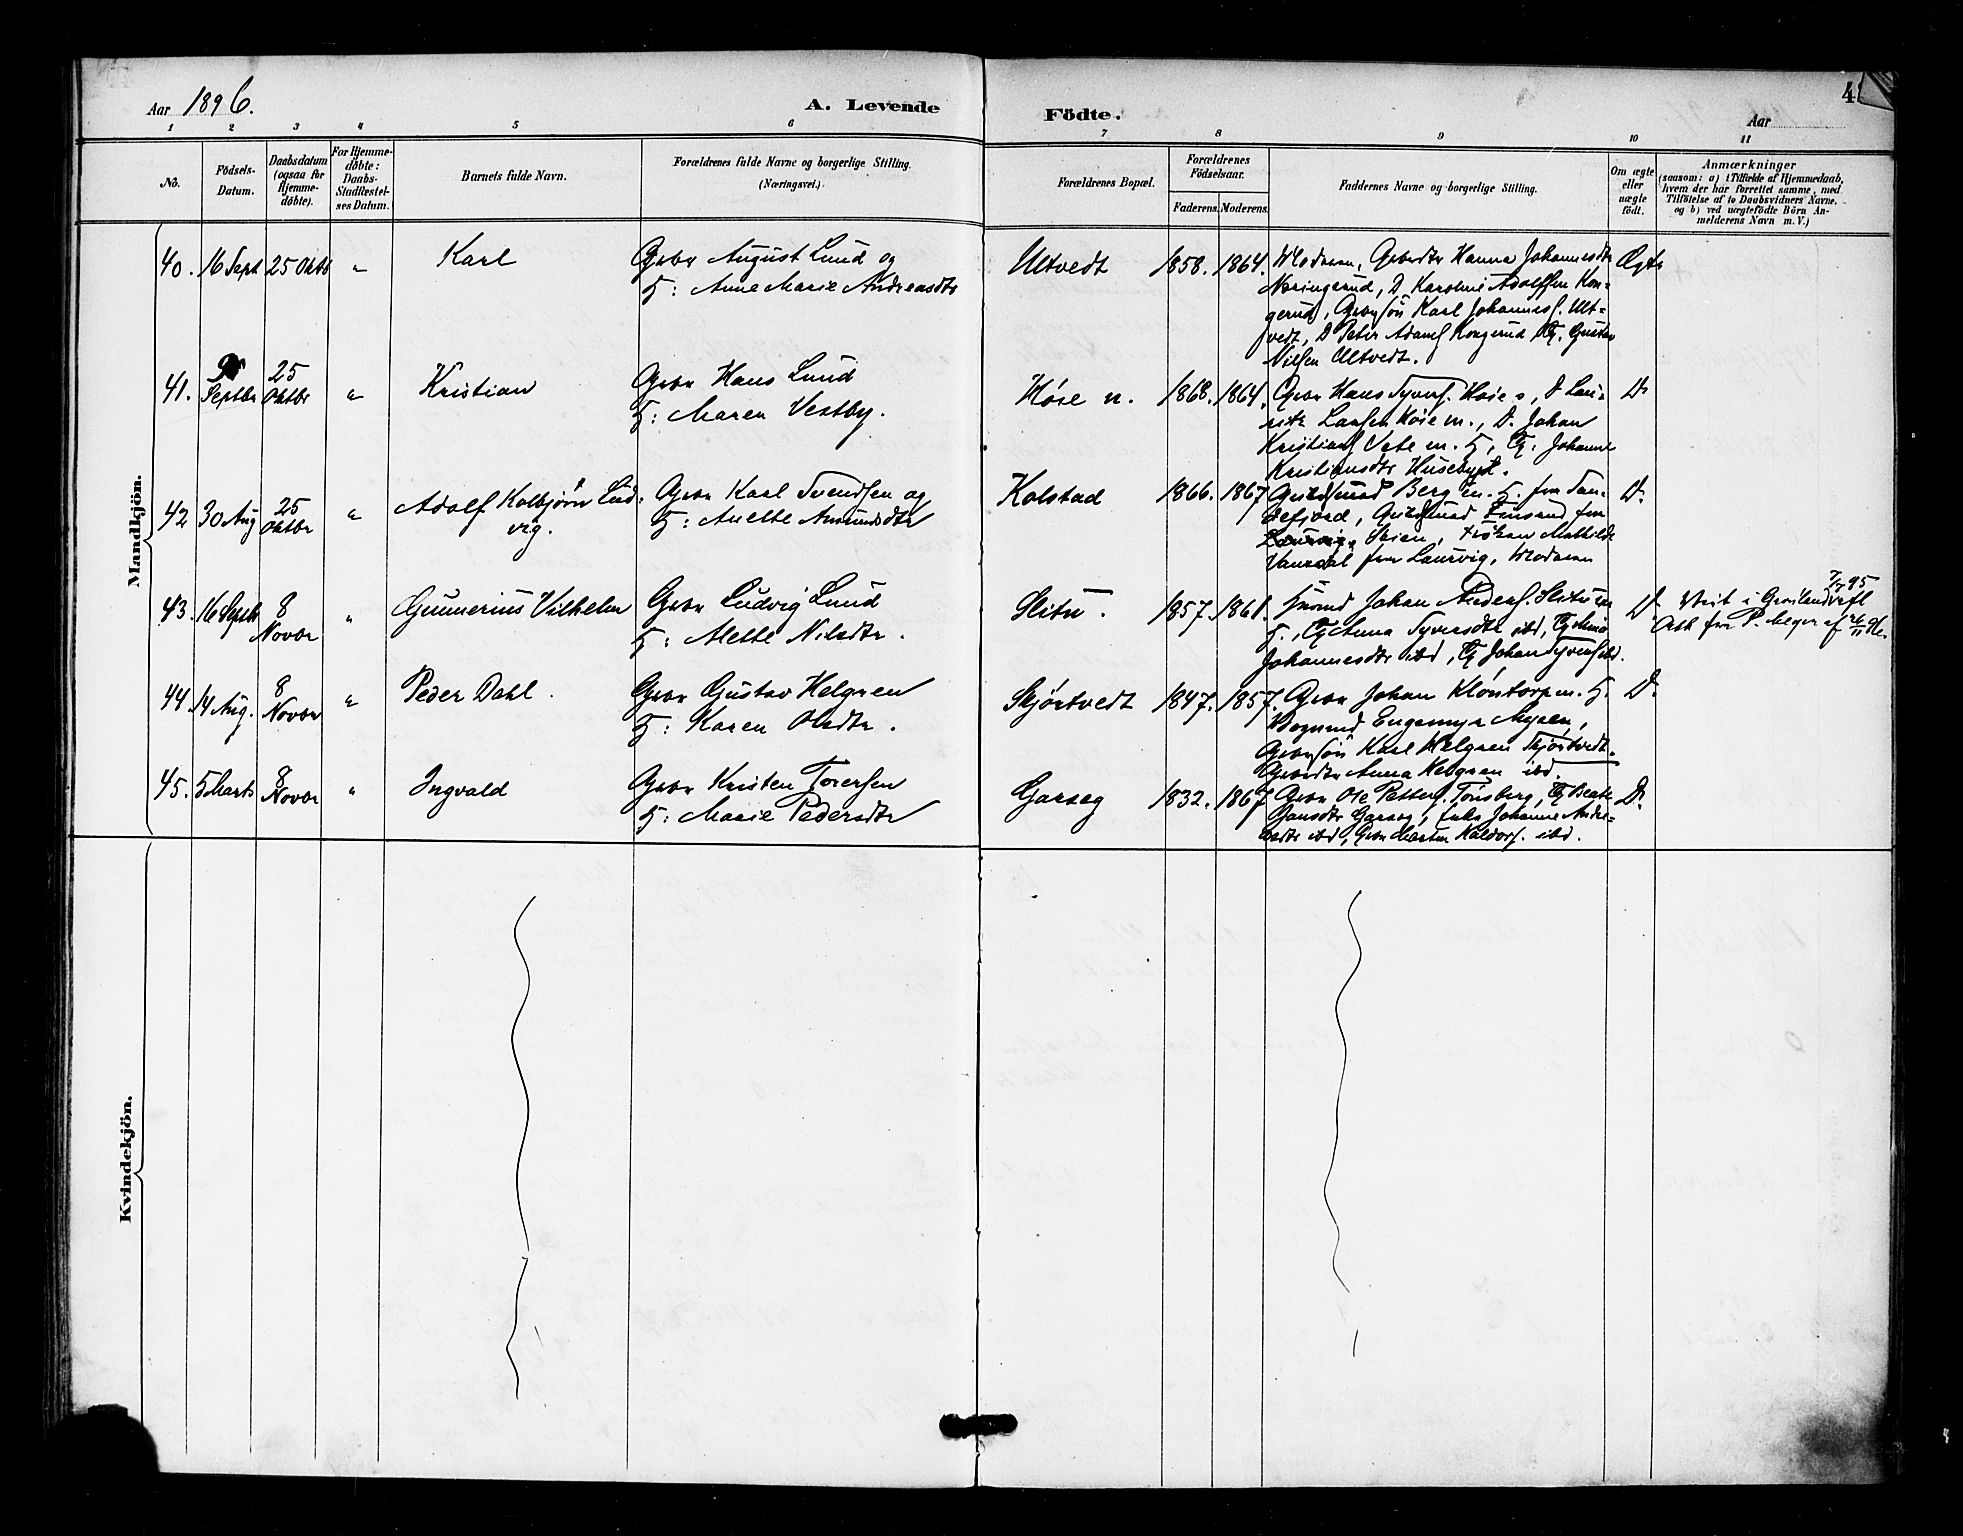 Aar 1896.
A. Levende
Födte.
4
Aar
1 2 3 4 5 6 7 8 9 10 11
No.
Födsels-
Datum.
Daabsdatum
(ogsaa for
Hjemme-
döbte).
For Hjemme-
döbte:
Daabs-
Stadfæstel-
ses Datum.
Barnets fulde Navn.
Forældrenes fulde Navne og borgerlige Stilling.
(Næringsvei.)
Forældrenes Bopæl.
Forældrenes
Födselsaar.
Faderens. Moderens.
Faddernes Navne og borgerlige Stilling.
Om ægte
eller
uægte
födt.
Anmærkninger
(saasom: a) i Tilfælde af Hjemmedaab,
hvem der har forrettet samme, med
Tilföielse af to Daabsvidners Navne,
og b) ved uægtefödte Börn An-
melderens Navn m. V.)
Mandkjön.
40. 16 Sept 25 Oktb " Karl
Gbr August Lund og
H: Anne Marie Andreasdtr
Ultvedt 1858. 1864.
Moderen, Gbrdtr Hanna Johannesdtr
Næringsrud, D Karoline Adolfsen Kon-
gerud, Gbrsön Karl Johannesf. Ult-
vedt, D Peter Adamf Kongerud Tj. Gustav
Nilsen Ultvedt.
Ægte
41. Septbr 25 Oktbr " Kristian
Gbr Hans Lund
H: Maren Vestby.
Höie n. 1868. 1864.
Gbr Hans Syverf. Höie s, D Lau-
ritz Larsen Höie m., D. Johan
Kristianf Vete m. H, Tj. Johanne
Kristiansdtr Husebye.
D.
42 30 Aug 25 Oktbr " Adolf Kolbjörn Lud-
vig.
Gbr Karl Svendsen og
H: Anette Amundsdtr
Kolstad 1866. 1867
Berg m. H. fra San-
defjord, fra
Laurvig, Mathilde
fra Laurvig, Moderen
D.
43. 16 Septb 8 Novbr " Gunnerius Vilhelm
Gbr Ludvig Lund
H: Alette Nilsdtr.
Slitu. 1857. 1861.
Johan Anderf. Slitu m
H., Tj Anna Syversdtr ibd,
Johannesdtr ibd, Tj Johan Syverf ibd.
D.
44. 14 Aug. 8 Novbr " Peder Dahl.
Gbr Gustav Helgren
H: Karen Olsdtr.
Skjörtvedt 1847. 1857.
Gbr Johan Klöntorp m. H.
Engemyr Mysen,
Gbrsön Karl Helgren Skjörtvedt.
Gbrdtr Anna Helgren ibd.
D.
45. 5 Marts 8 Novbr " Ingvald
Gbr Kristen Torersen
H: Marie Pedersdtr
Garseg 1832. 1867
Gbr Ole Petterf. Tönsberg, Tj Beate
Hansdtr Garseg, Enke Johanne Andre-
asdtr ibd, Gbr Morten Haldorf. ibd.
D.
Kvindekjön.